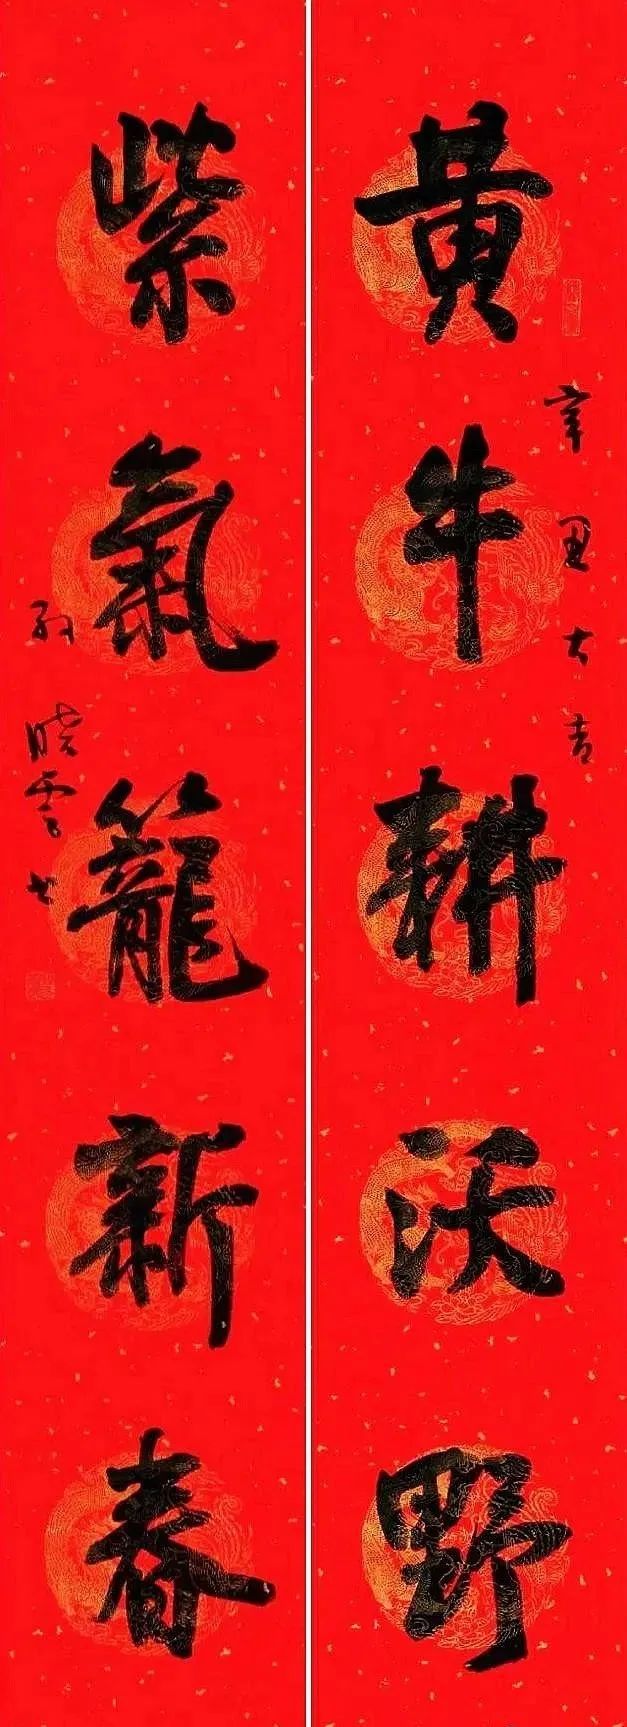 黄牛耕沃野
辛丑大吉
紫氣籠新春
孙晓雲书